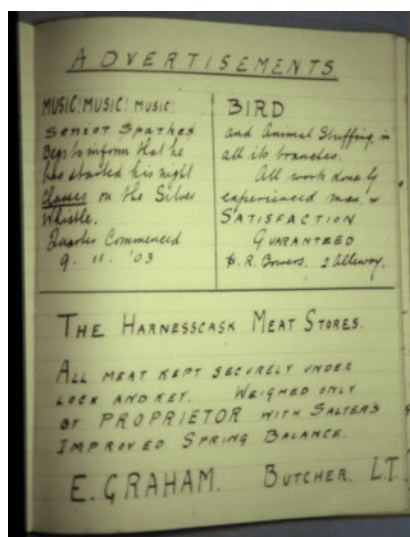 ADVERTISEMENTS
MUSIC! MUSIC! MUSIC!
Senior Spathes
Begs to inform that he
has started his night
Classes on the Silver
Whistle.
Quarter Commenced
9. 11. '03
BIRD
and Animal Stuffing in
all its branches.
All work done by
experienced man
SATISFACTION
GUARANTEED
R. Bowers. 2 Alleway.
THE HARNESSCASK MEAT STORES.
ALL MEAT KEPT SECURELY UNDER
LOCK AND KEY. WEIGHED ONLY
BY PROPRIETOR WITH SALTER'S
IMPROVED SPRING BALANCE.
E. GRAHAM. BUTCHER. L.T.